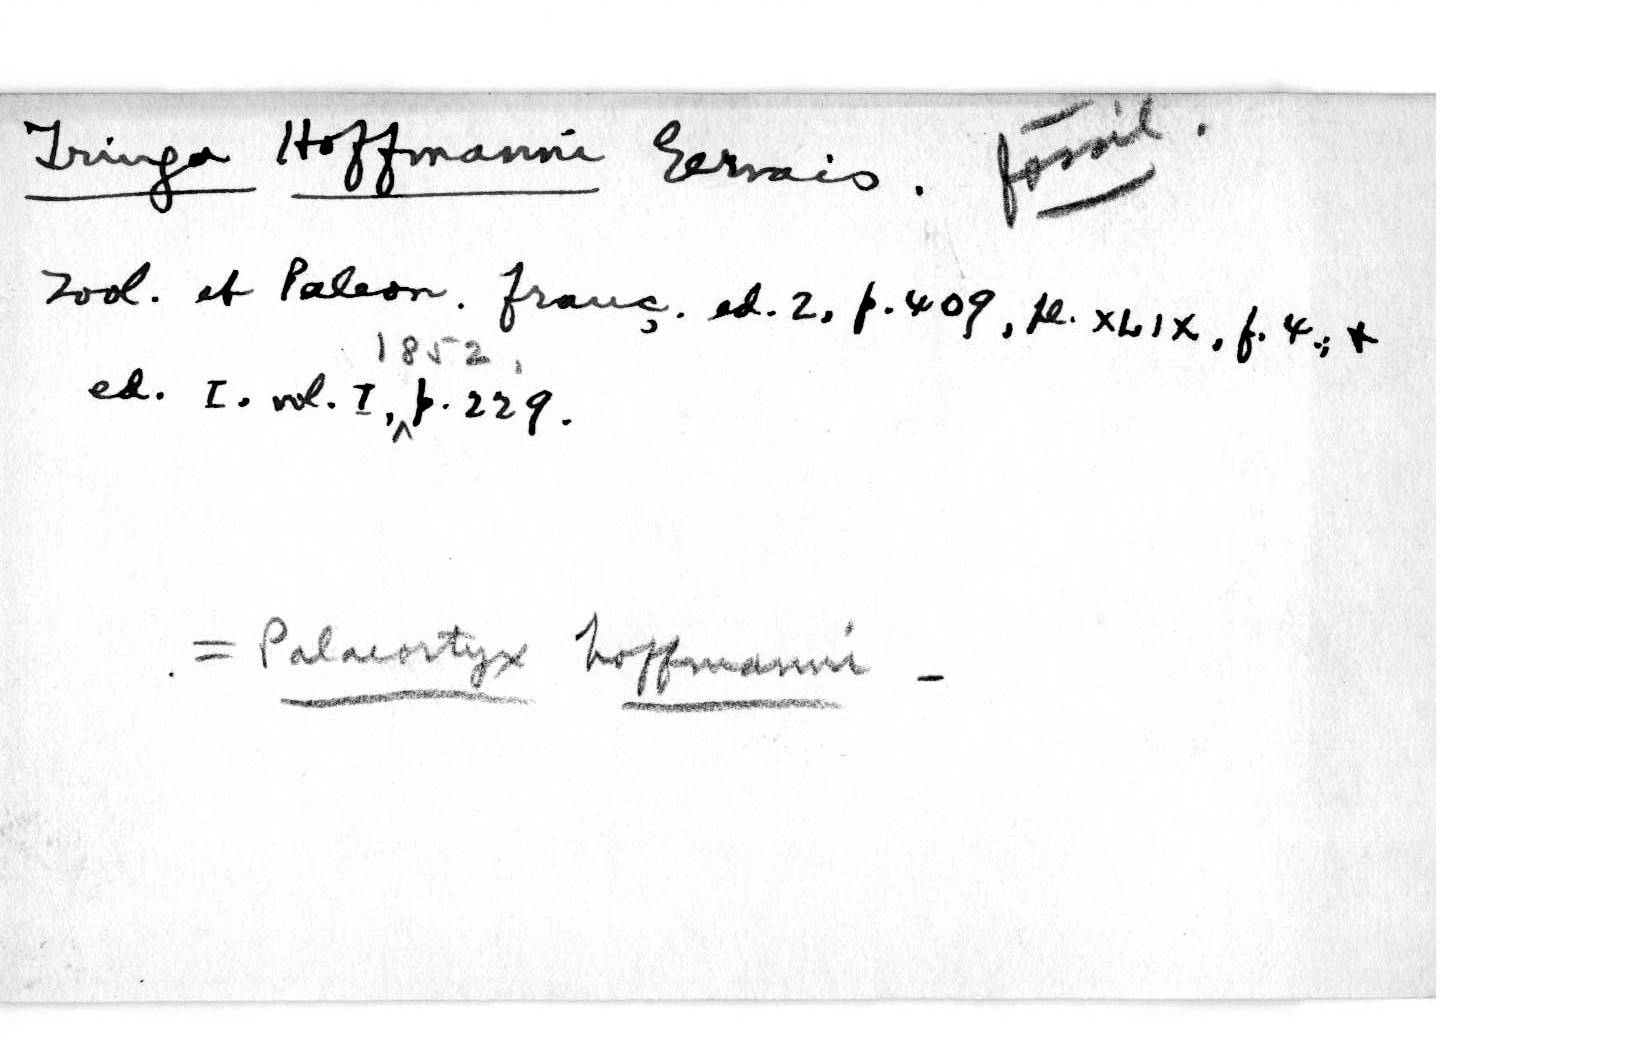 Tringa Hoffmanni Gervais. fossil.
Zool. et Paleon. franç. ed. 2, p. 409, pl. XLIX, f. 4.; +
1852,
ed. I. vol. I, ^ p. 229.
= Palaeortyx hoffmanni -